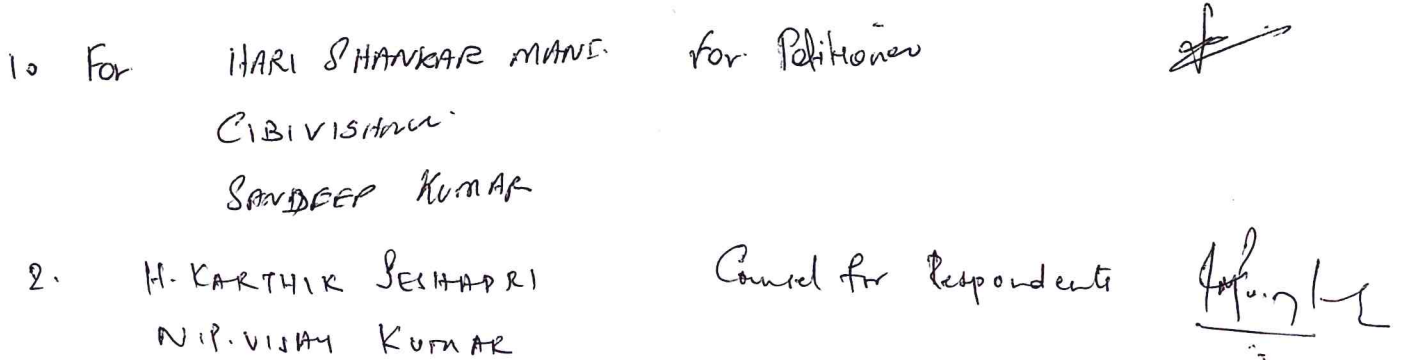 1. For HARI SHANKAR MANI. For Petitioner
CIBI VISHNU.
SANDEEP KUMAR
2. H. KARTHIK SESHADRI Counsel for Respondents
N.P. VIJAY KUMAR